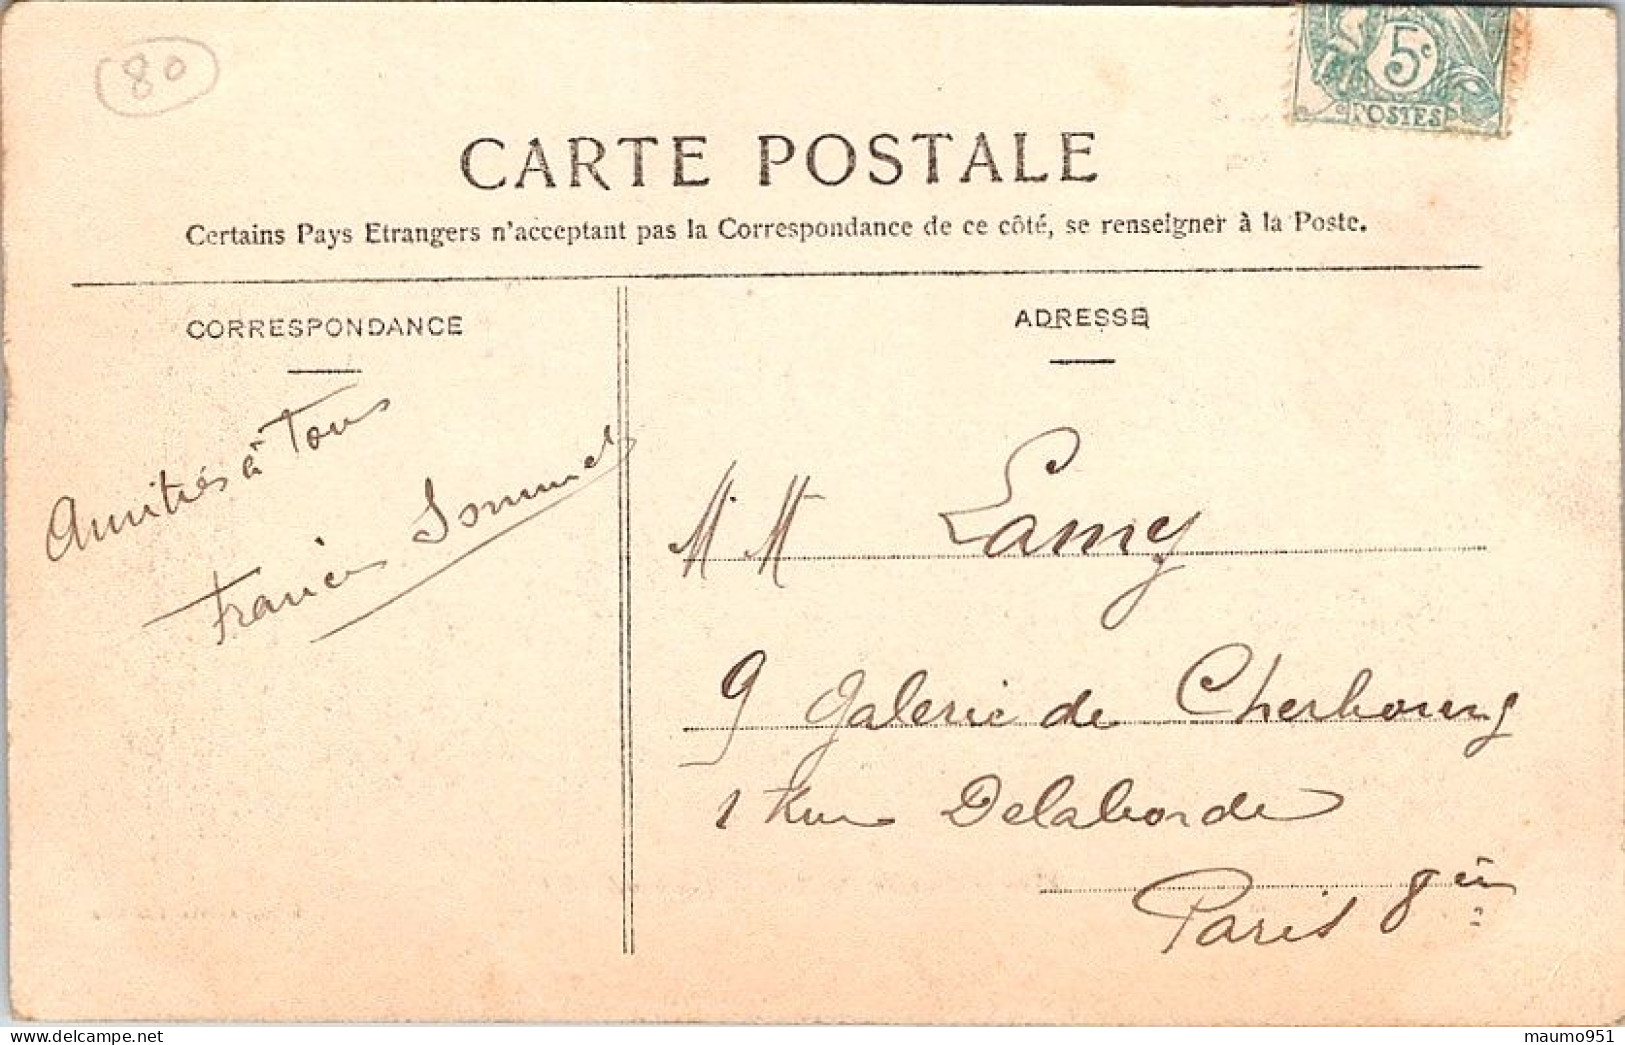 80
5c
POSTES
CARTE POSTALE
Certains Pays Etrangers n'acceptant pas la Correspondance de ce côté, se renseigner à la Poste.
CORRESPONDANCE
Amitiés à Tous
Francis Sommer
ADRESSE
M. M Lamy
9 Galerie de Cherbourg
1 Rue Delaborde
Paris 8èm
maumo951